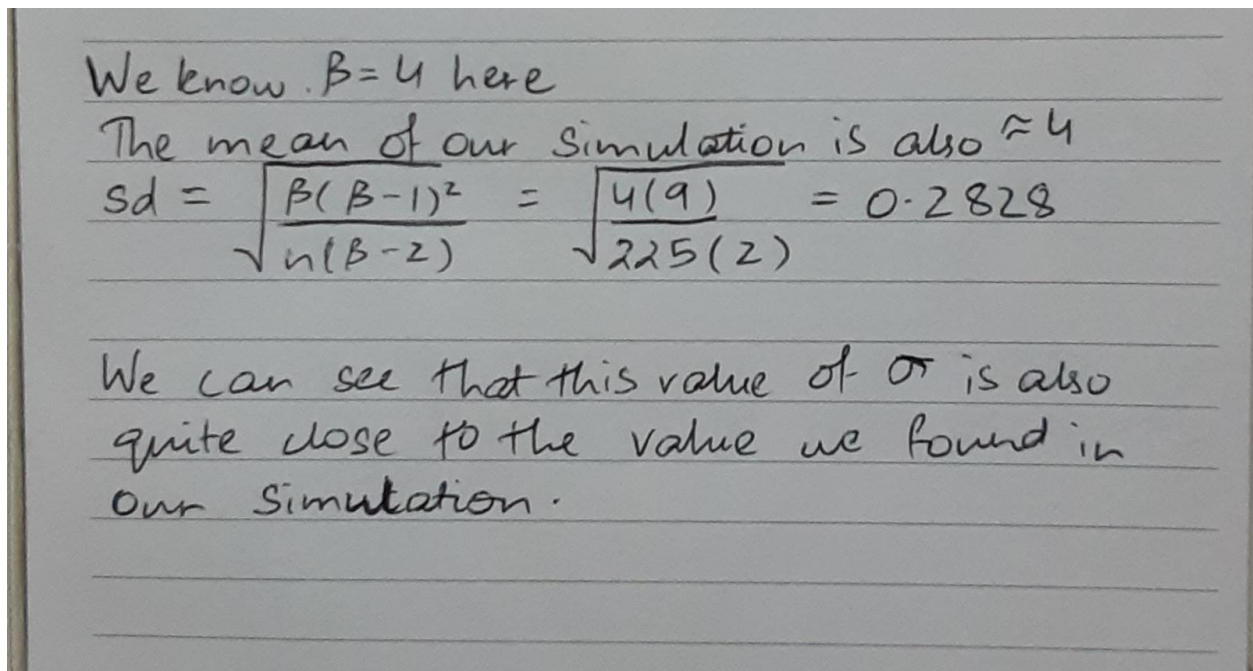 We know. β=4 here
The mean of our simulation is also ≈4
sd = √(β(β-1)²/n(β-2)) = √(4(9)/225(2)) = 0.2828
We can see that this value of σ is also
quite close to the value we found in
our simulation.